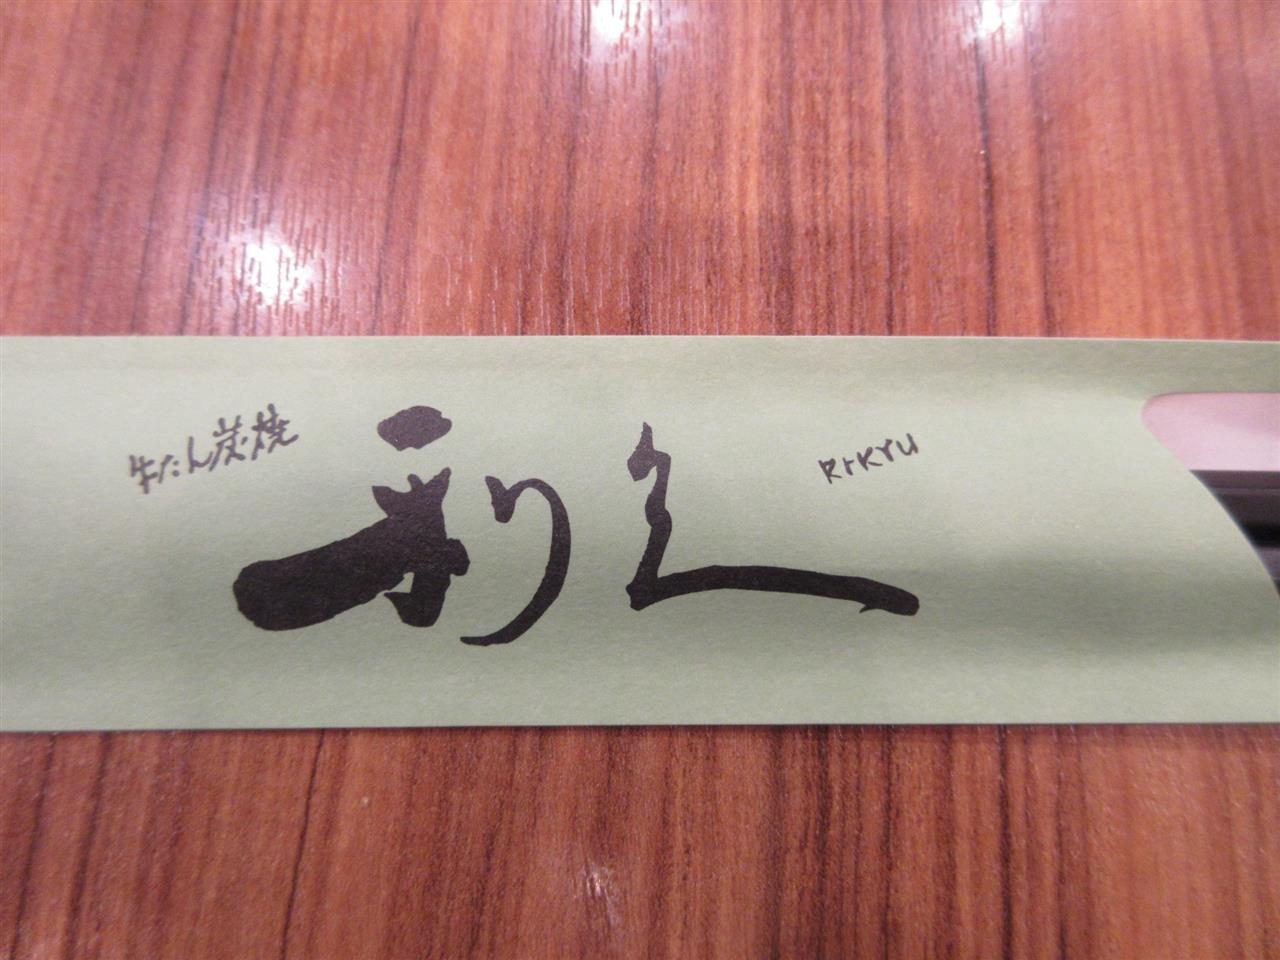 牛たん炭焼
利久
RIKYU